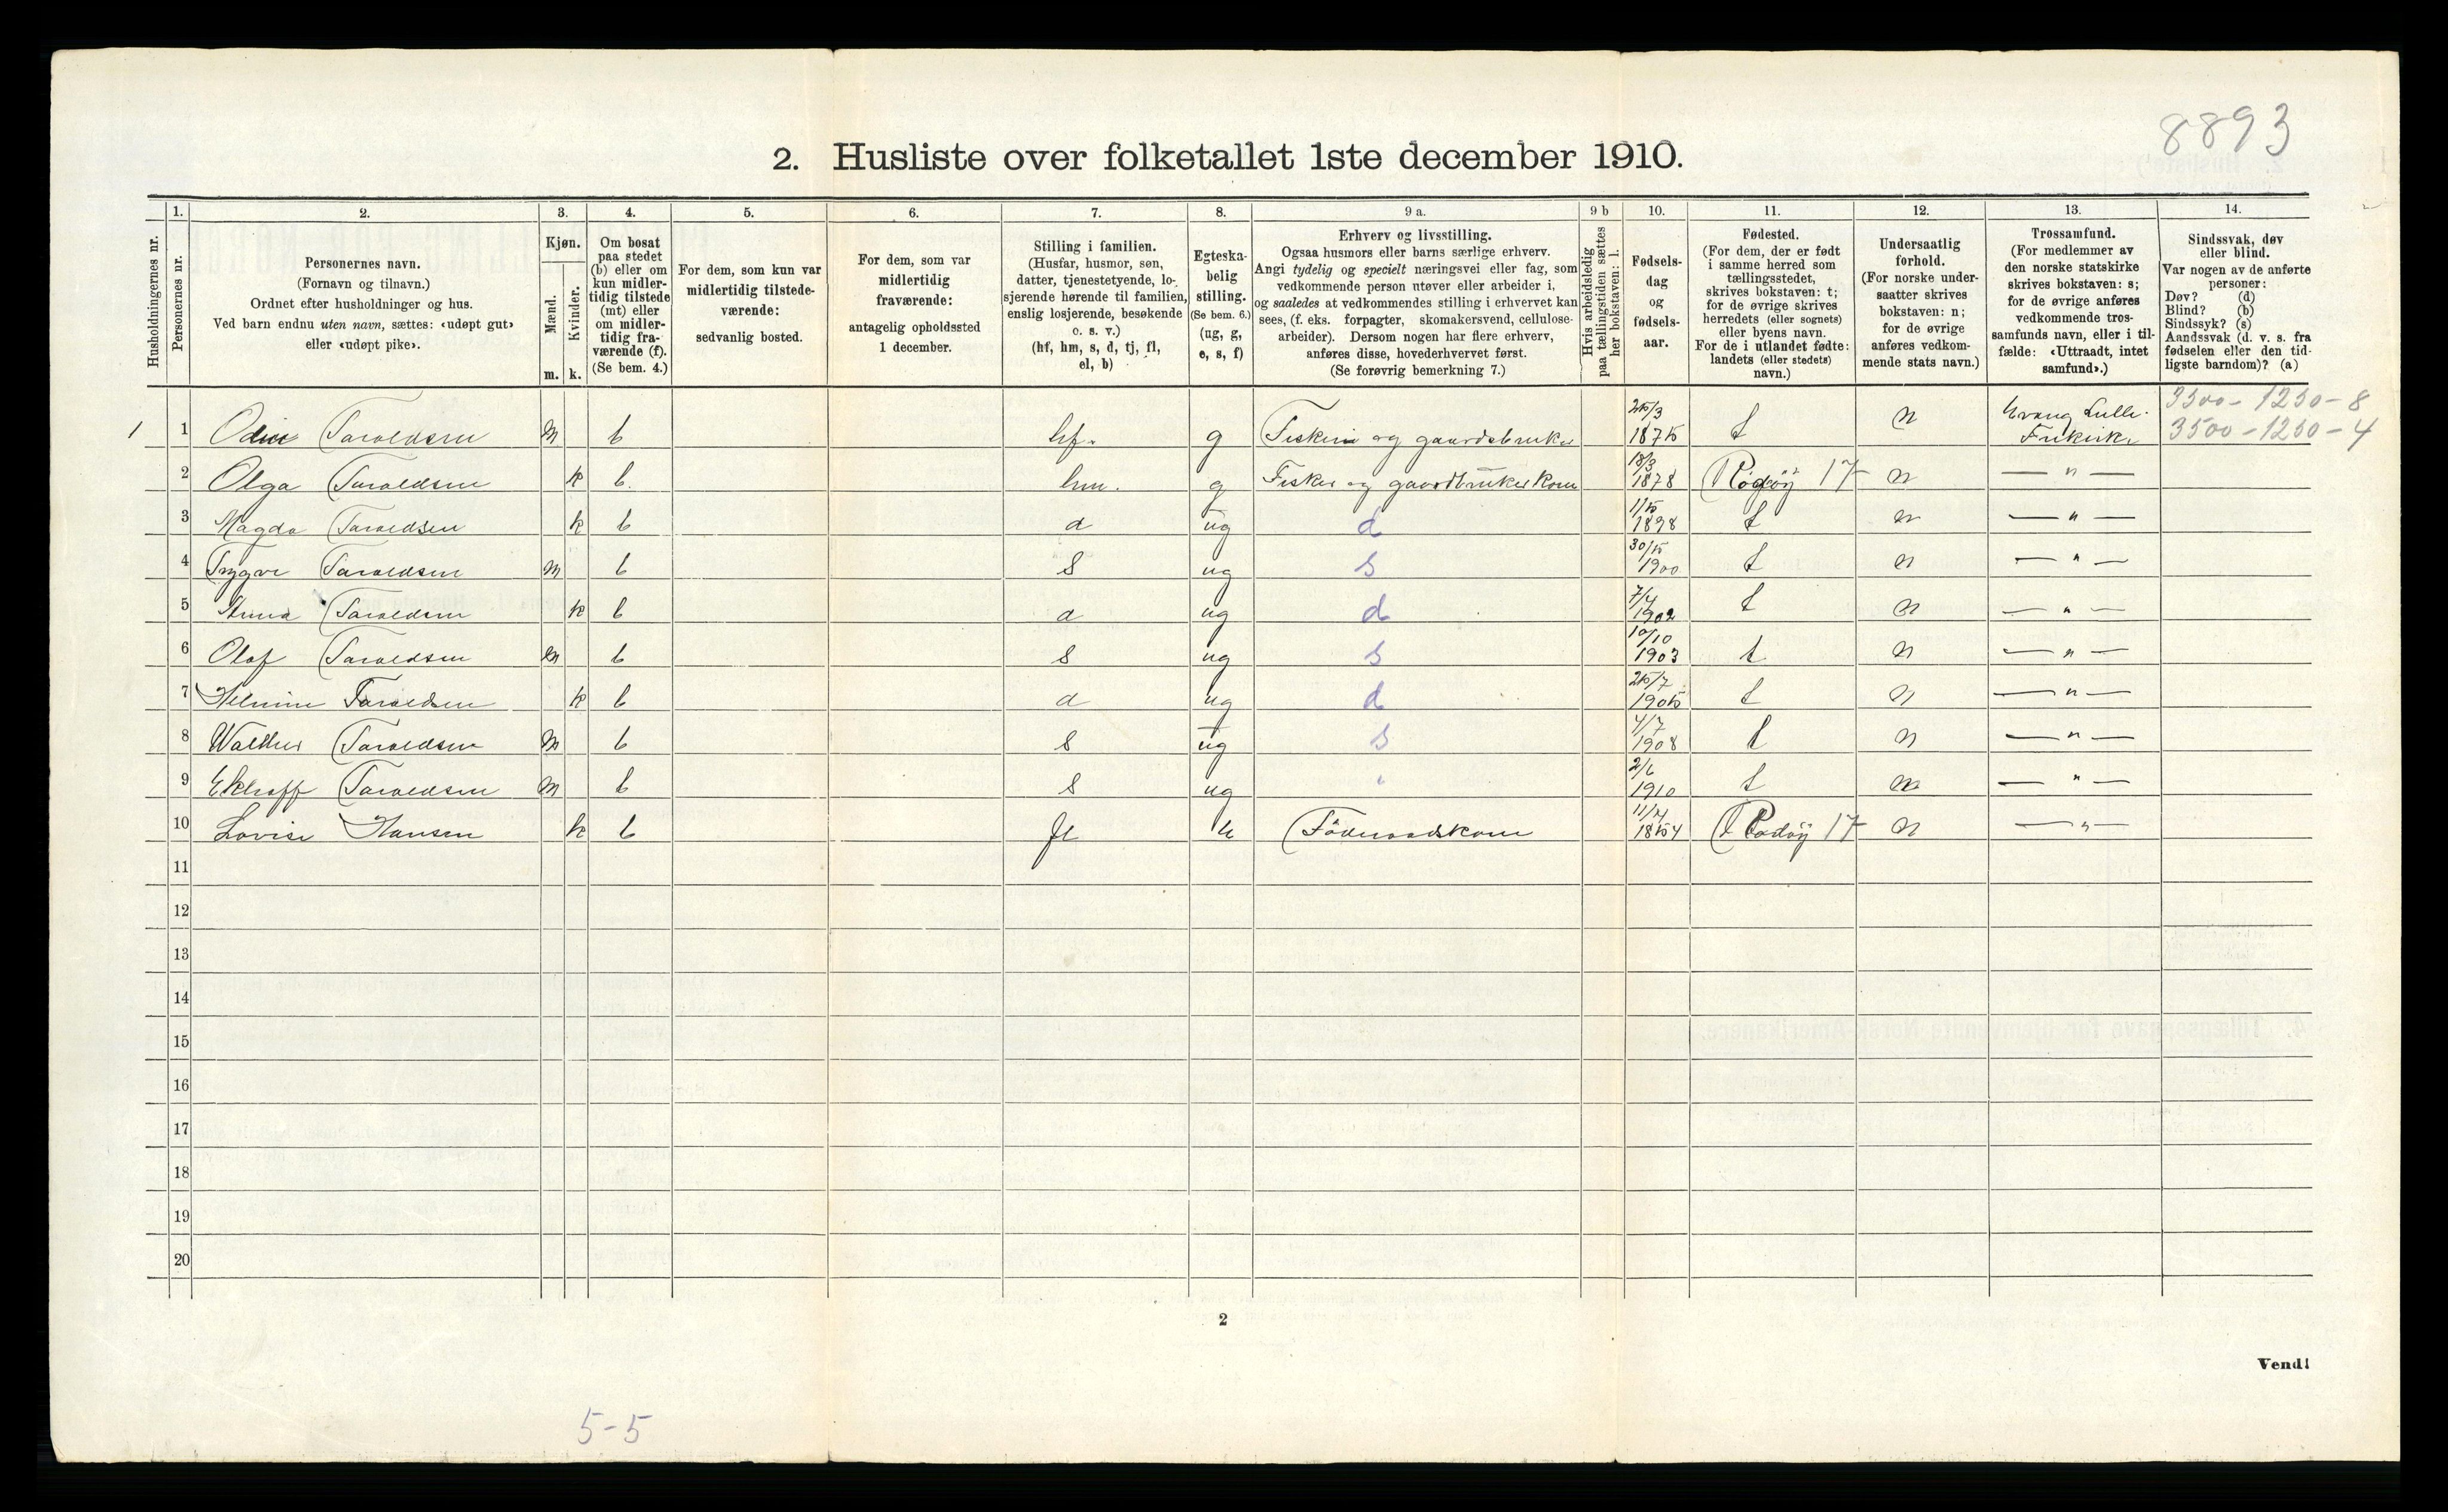 8893
2. Husliste over folketallet 1ste december 1910.
Husholdningernes nr.
1.
Personernes nr.
2.
Personernes navn.
(Fornavn og tilnavn.)
Ordnet efter husholdninger og hus.
Ved barn endnu uten navn, sættes: «udøpt gut»
eller «udøpt pike».
3.
Kjøn.
Mænd.
Kvinder.
m. k.
4.
Om bosat
paa stedet
(b) eller om
kun midler-
tidig tilstede
(mt) eller
om midler-
tidig fra-
værende (f).
(Se bem. 4.)
5.
For dem, som kun var
midlertidig tilstede-
værende:
sedvanlig bosted.
6.
For dem, som var
midlertidig
fraværende:
antagelig opholdssted
1 december.
7.
Stilling i familien.
(Husfar, husmor, søn,
datter, tjenestetyende, lo-
sjerende hørende til familien,
enslig losjerende, besøkende
o. s. v.)
(hf, hm, s, d, tj, fl,
el, b)
8.
Egteska-
belig
stilling.
(Se bem. 6.)
(ug, g,
e, s, f)
9 a.
Erhverv og livsstilling.
Ogsaa husmors eller barns særlige erhverv.
Angi tydelig og specielt næringsvei eller fag, som
vedkommende person utøver eller arbeider i,
og saaledes at vedkommendes stilling i erhvervet kan
sees, (f. eks. forpagter, skomakersvend, cellulose-
arbeider). Dersom nogen har flere erhverv,
anføres disse, hovederhvervet først.
(Se forøvrig bemerkning 7.)
9 b
Hvis arbeidsledig
paa tællingstiden sættes
her bokstaven: l.
10.
Fødsels-
dag
og
fødsels-
aar.
11.
Fødested.
(For dem, der er født
i samme herred som
tællingsstedet,
skrives bokstaven: t;
for de øvrige skrives
herredets (eller sognets)
eller byens navn.
For de i utlandet fødte:
landets (eller stedets)
navn.)
12.
Undersaatlig
forhold.
(For norske under-
saatter skrives
bokstaven: n;
for de øvrige
anføres vedkom-
mende stats navn.)
13.
Trossamfund.
(For medlemmer av
den norske statskirke
skrives bokstaven: s;
for de øvrige anføres
vedkommende tros-
samfunds navn, eller i til-
fælde: «Uttraadt, intet
samfund».)
14.
Sindssvak, døv
eller blind.
Var nogen av de anførte
personer:
Døv? (d)
Blind? (b)
Sindssyk? (s)
Aandssvak (d. v. s. fra
fødselen eller den tid-
ligste barndom)? (a)
3500 - 1250 - 8
3500 - 1250 - 4
1 1 Odin Taraldsen m b hf. g Fiskeri og gaardsbruker 25/3 1875 t n Evang Luth. Frikirke
2 Olga Taraldsen k b. hm. g Fisker og gaardbruker Kone 18/3 1878 Rødøy 17 n — " —
3 Magda Taraldsen k b d ug d 1/5 1898 t n — " —
4 Trygve Taraldsen m b s ug s 30/5 1900 t n — " —
5 Taraldsen k b d ug d 7/4 1902 t n — " —
6 Olaf Taraldsen m b s ug s 10/10 1903 t n — " —
7 Taraldsen k b d ug d 25/7 1905 t n — " —
8 Walther Taraldsen m b s ug s 4/7 1908 t n — " —
9 Taraldsen m b s ug " 2/6 1910 t n — " —
10 Lovise Hansen k b fl Föderaadskone 1854 Rødøy 17 n — " —
11
12
13
14
15
16
17
18
19
20
2
Vend!
5-5